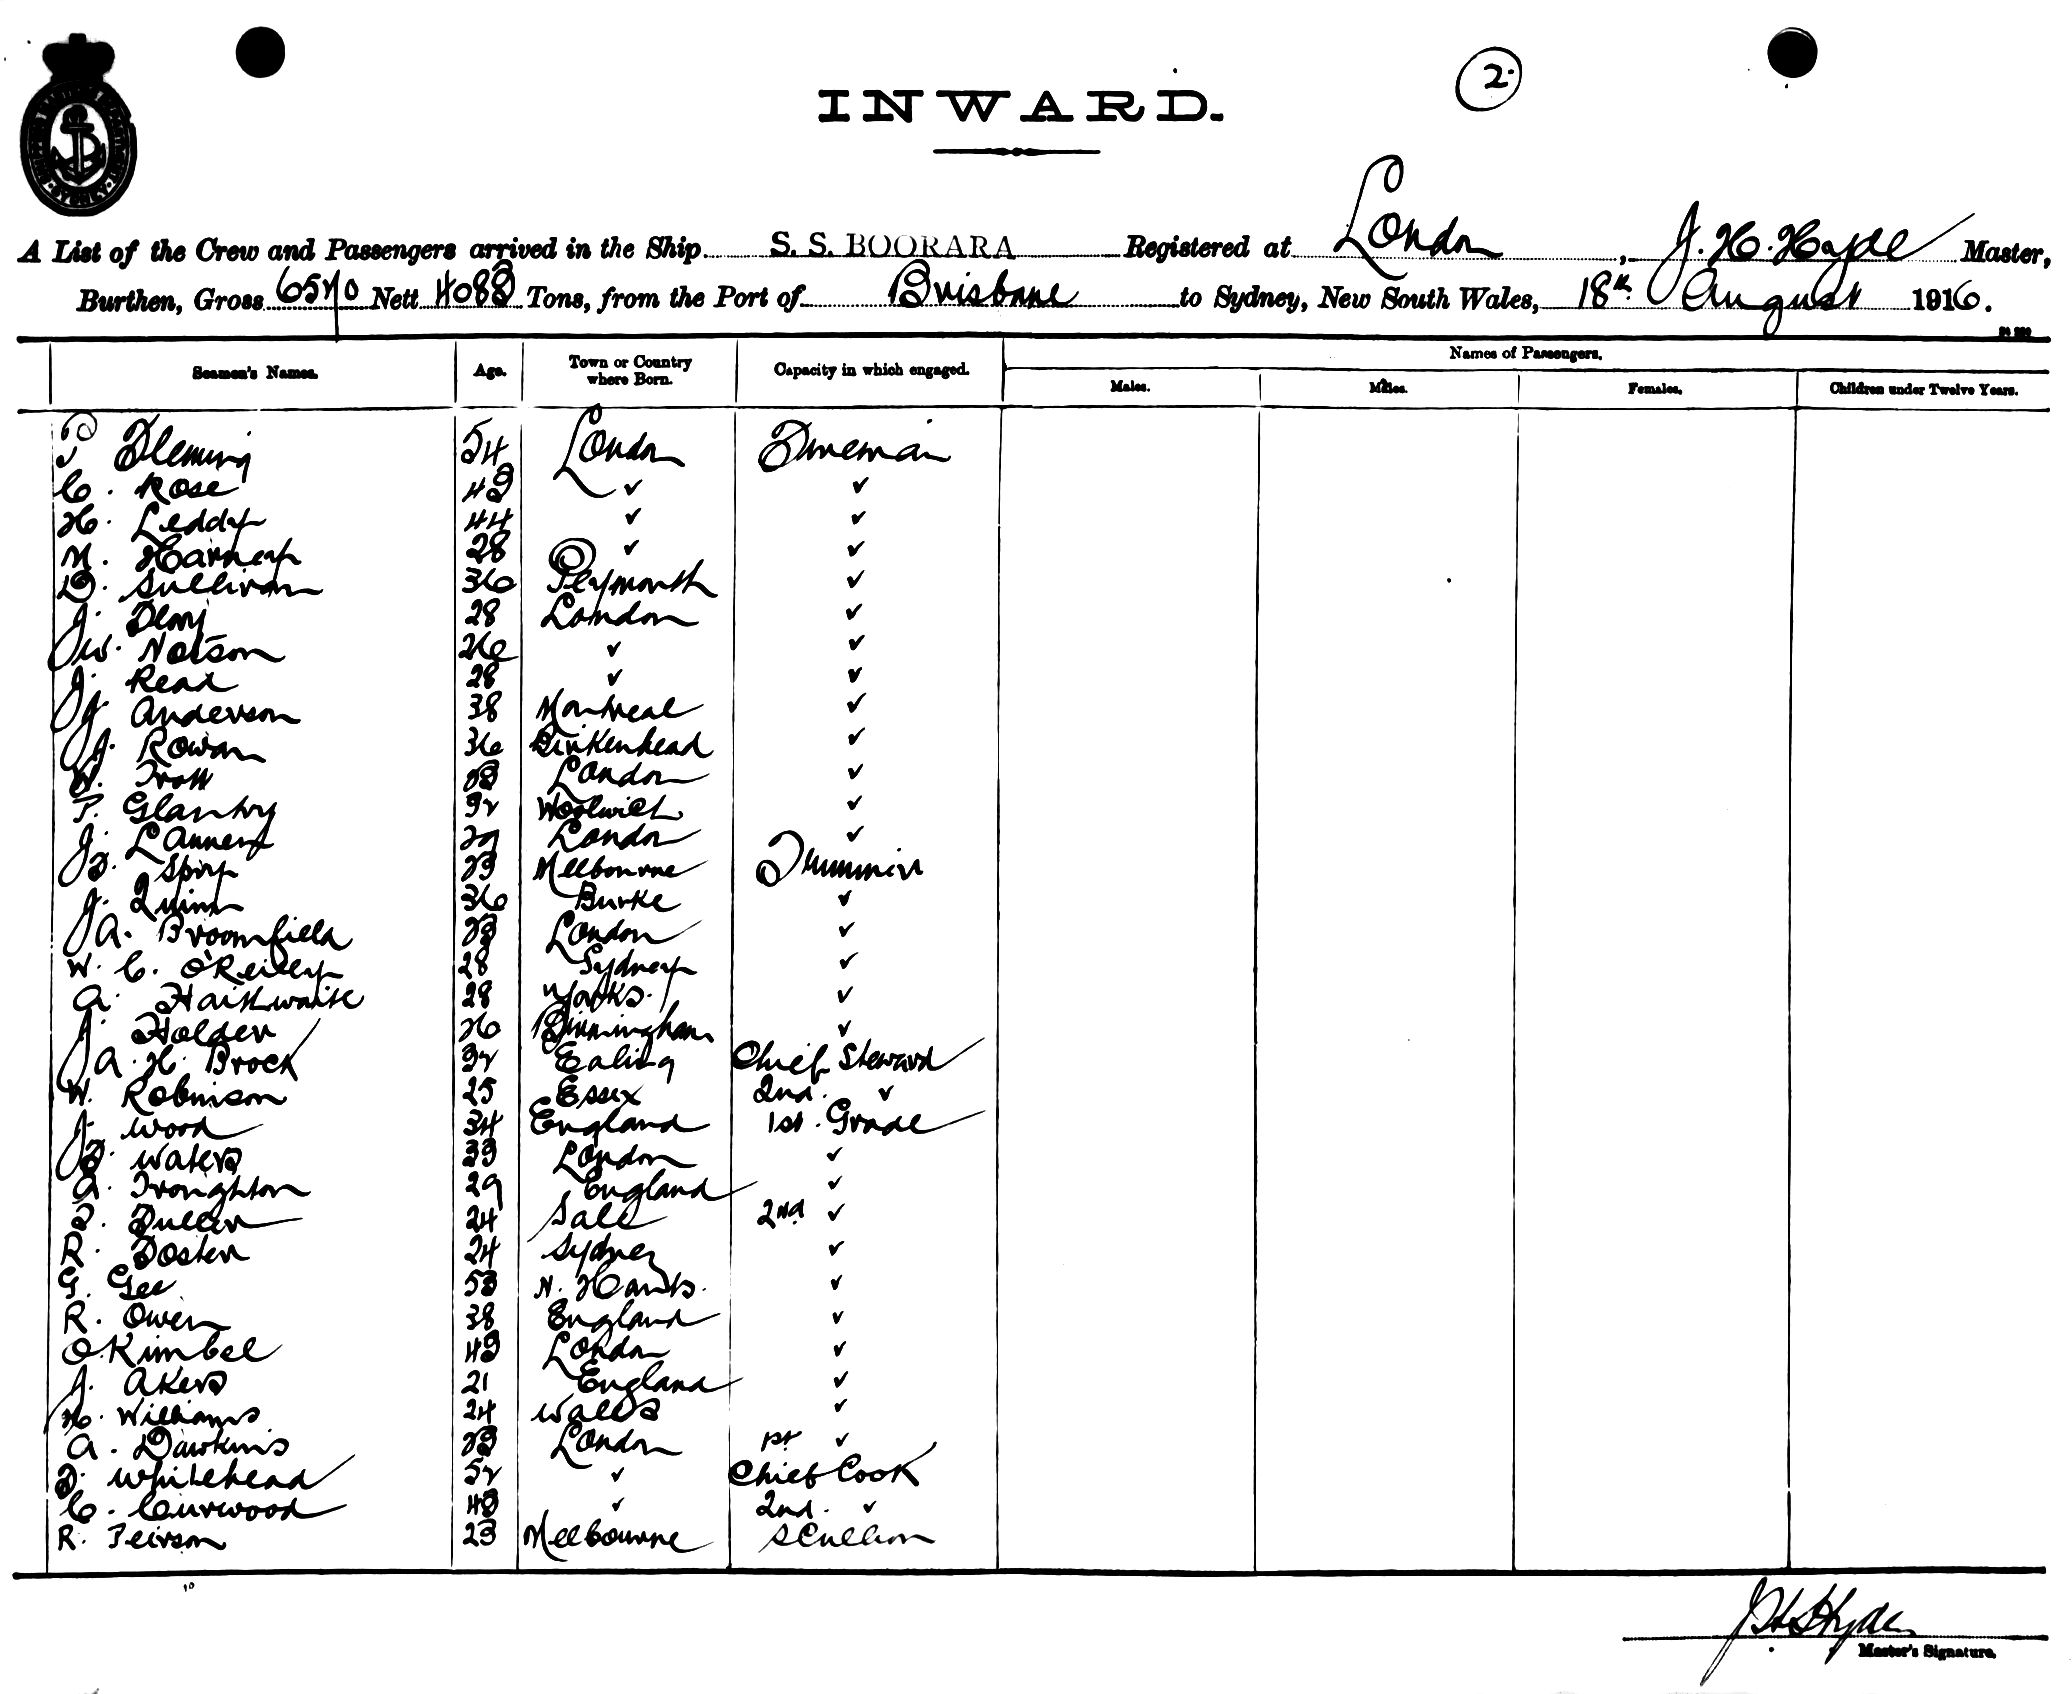 2.
INWARD.
A List of the Crew and Passengers arrived in the Ship S. S. BOORARA Registered at London, J. H. Hyde Master,
Burthen, Gross 6570 Nett 4083 Tons, from the Port of Brisbane to Sydney, New South Wales, 18th August 1916.
Seamen's Names. Age. Town or Country where Born. Capacity in which engaged. Names of Passengers.
Males. Males. Females. Children under Twelve Years.
P Fleming 54 London Fireman
C. Rose 43 ✓ ✓
H. Leddy 44 ✓ ✓
M. Harney 28 ✓ ✓
D. Sullivan 36 Plymouth ✓
J. 28 London ✓
W. Notson 26 ✓ ✓
J. Read 28 ✓ ✓
J. Anderson 38 Montreal ✓
J. Rowan 36 Birkenhead ✓
W. Trott 23 London ✓
P. Glanvy 32 Woolwich ✓
J. Lannery 29 London ✓
F. Spry 23 Melbourne Trimmer
J. Quinn 36 Burke ✓
A. Broomfield 23 London ✓
W. C. O'Reilly 28 Sydney ✓
A. Haithwaite 28 Yorks. ✓
J. Holden 26 Birmingham ✓
A. H. Brock 32 Ealing Chief Steward
W. Robinson 25 Essex 2nd. ✓
J. Wood 34 England 1st. Grade
F. Waters 33 London ✓
A. Troughton 29 England ✓
F. Fuller 24 Sale 2nd ✓
R. Foster 24 Sydney ✓
G. Gee 53 N. Hants. ✓
R. Owen 38 England ✓
O Kimbel 43 London ✓
J. Akers 21 England ✓
H. Williams 24 Wales ✓
A. Dawkins 23 London 1st ✓
F. Whitehead 52 ✓ Chief Cook
C. Curwood 48 ✓ 2nd. ✓
R. Peirson 23 Melbourne Scullion
J H Hyde
Master's Signature.